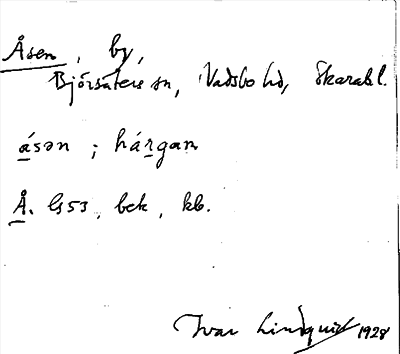 Åsen, by,
Björsäters sn, Vadsbo hd, Skarab l.
ásən ; hárgam
Å. G53, bek, kb.
Ivar Lindquist 1928